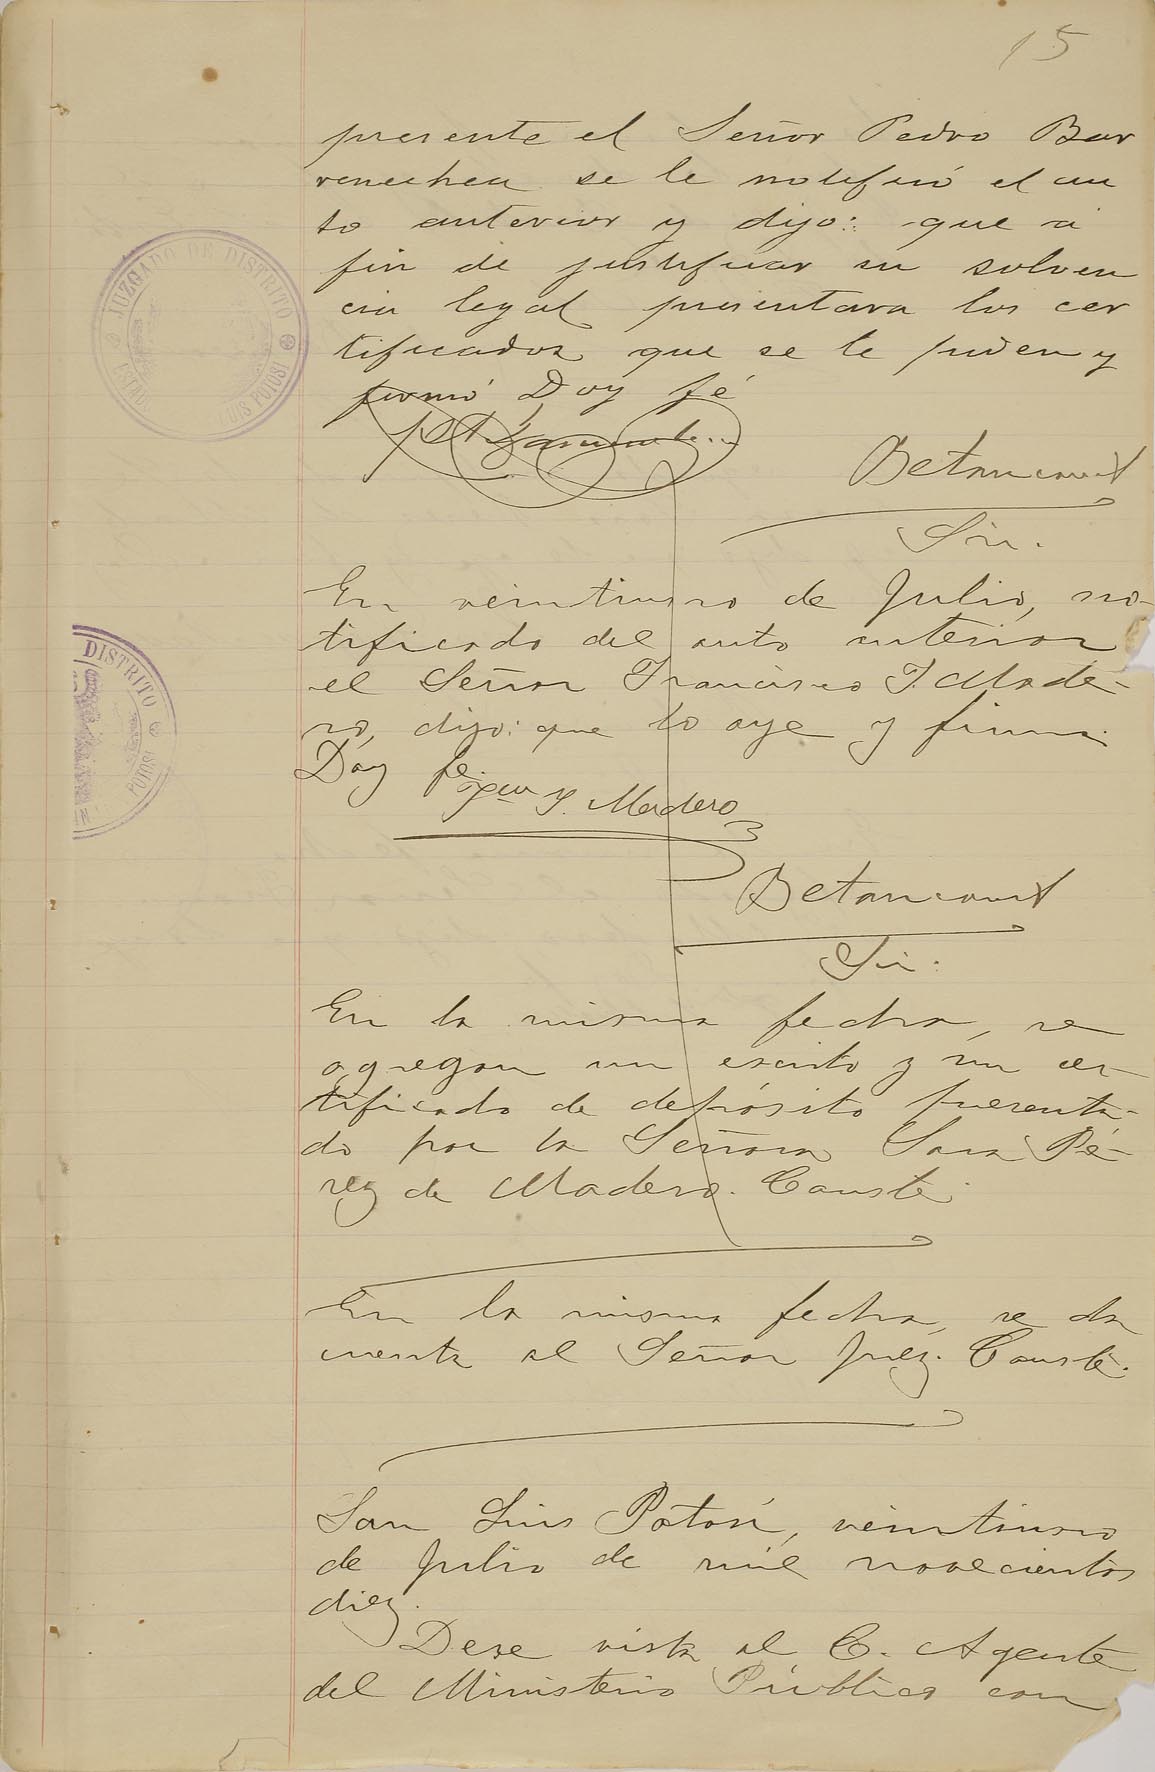 15
presente el Señor Pedro Bar
renechea se le notificó el au
to anterior y dijo: que a
fin de justificar su solven
cia legal presentara los cer
tificados que se le piden y
firmó Doy fé
Betancourt
Srio.
En veintiuno de Julio, no-
tificado del auto anterior
el Señor Francisco I. Made-
ro, dijo: que lo oye y firma.
Doy fe.
Fco. I. Madero
Betancourt
Srio.
En la misma fecha, se
agregan un escrito y un cer-
tificado de depósito presenta-
do por la Señora Sara Pé-
rez de Madero. Conste.
En la misma fecha, se da
cuenta al Señor Juez. Conste.
San Luis Potosí, veintiuno
de Julio de mil novecientos
diez.
Dese vista al C. Agente
del Ministerio Público con
JUZGADO DE DISTRITO
LUIS POTOSI
DISTRITO
POTOSI